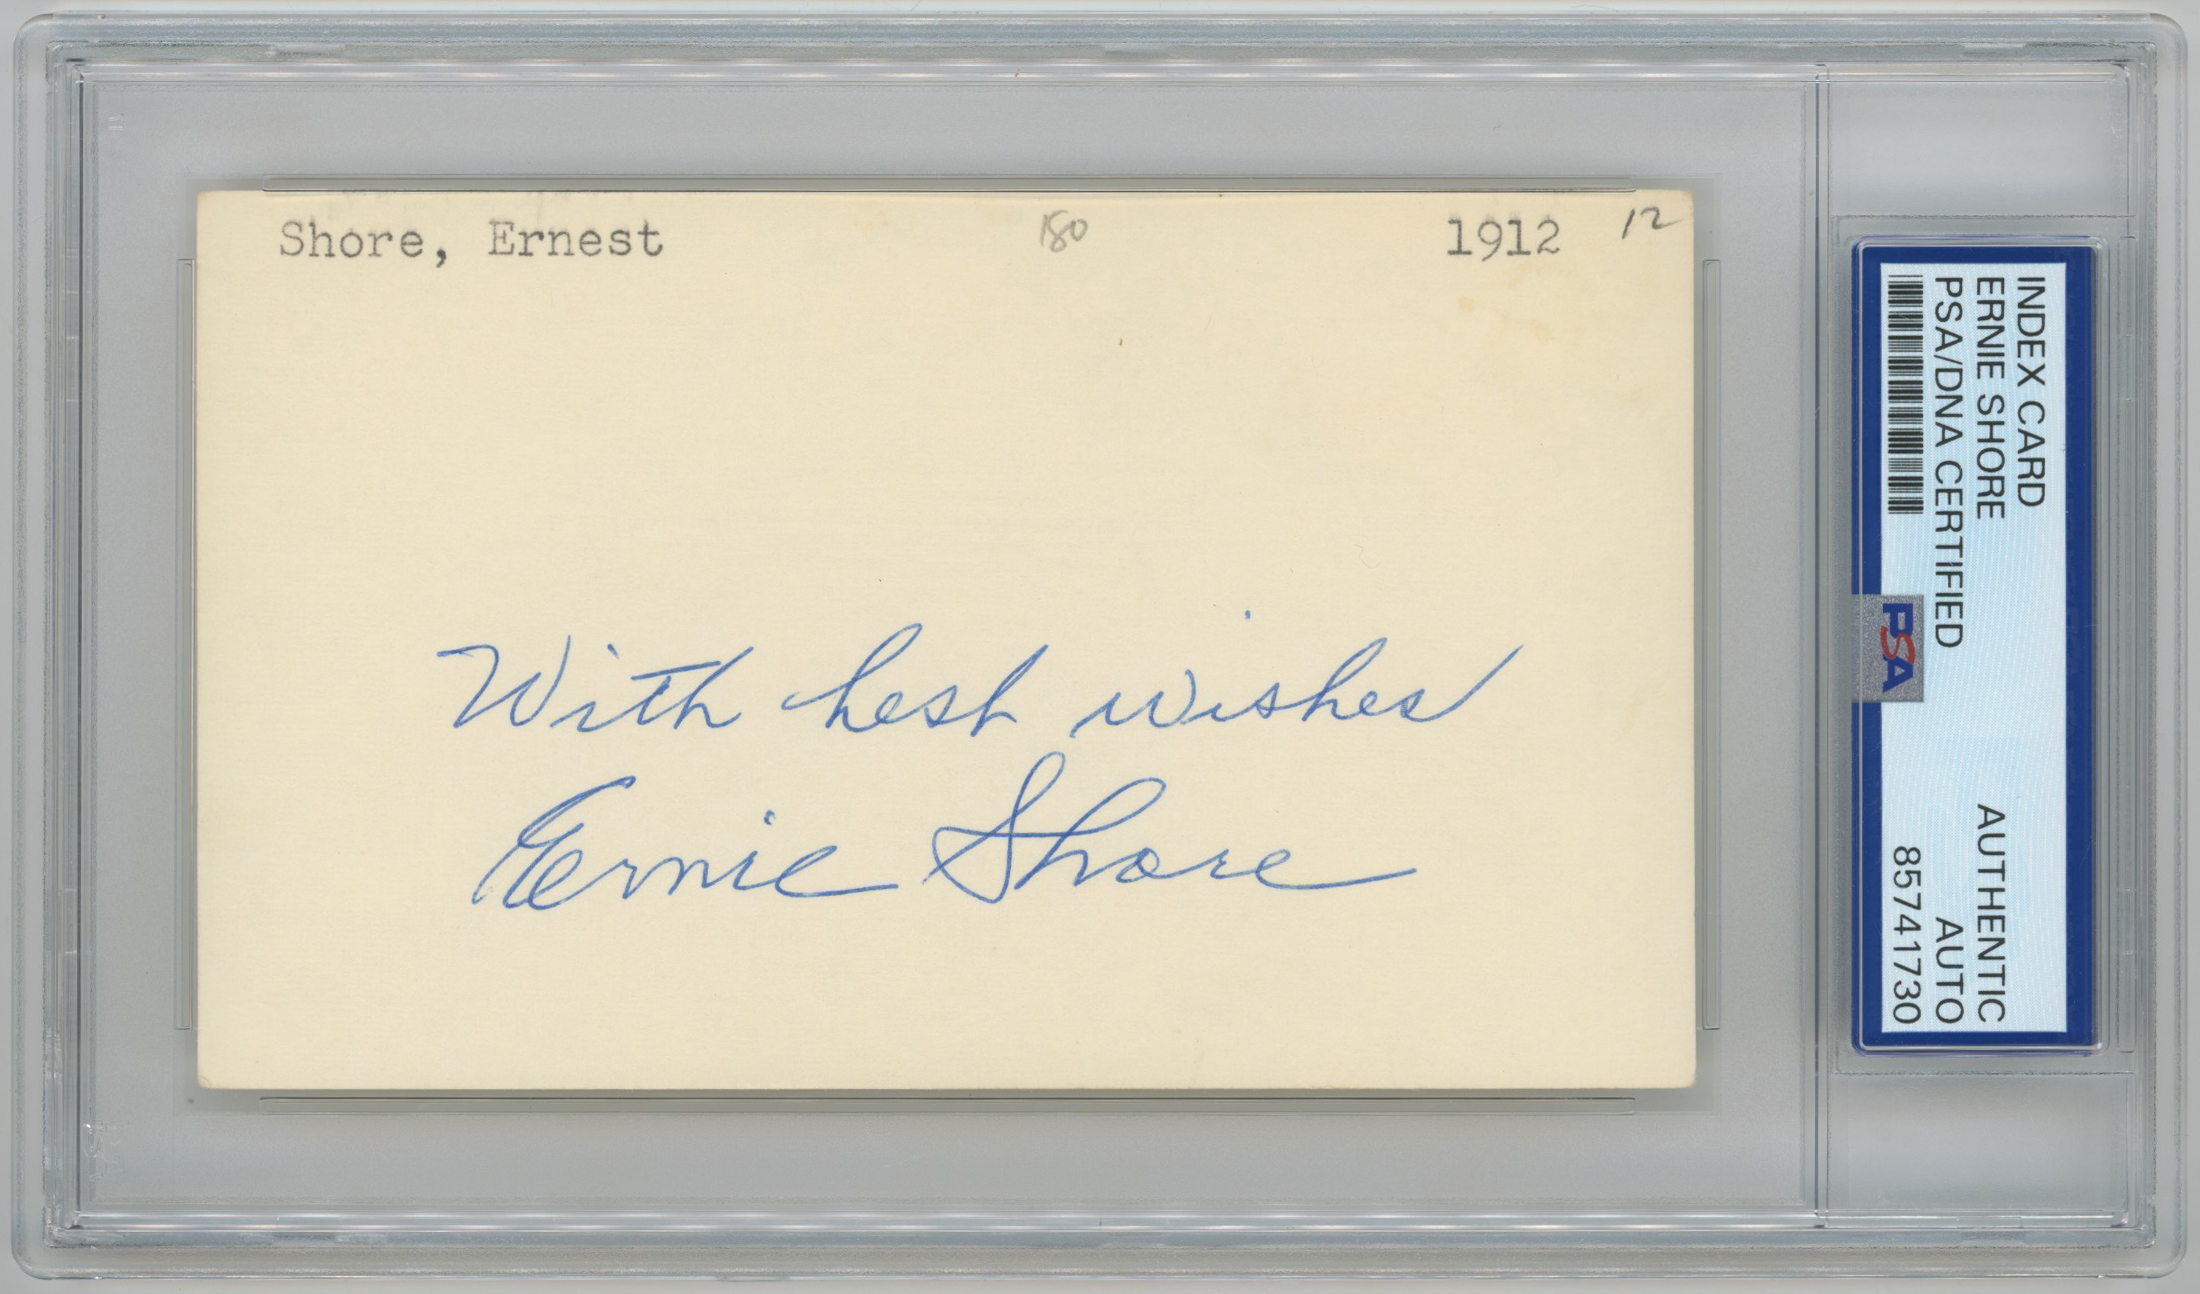 Shore, Ernest 180 1912 12
With best wishes
Ernie Shore
INDEX CARD
ERNIE SHORE
PSA/DNA CERTIFIED
AUTHENTIC
AUTO
85741730
PSA